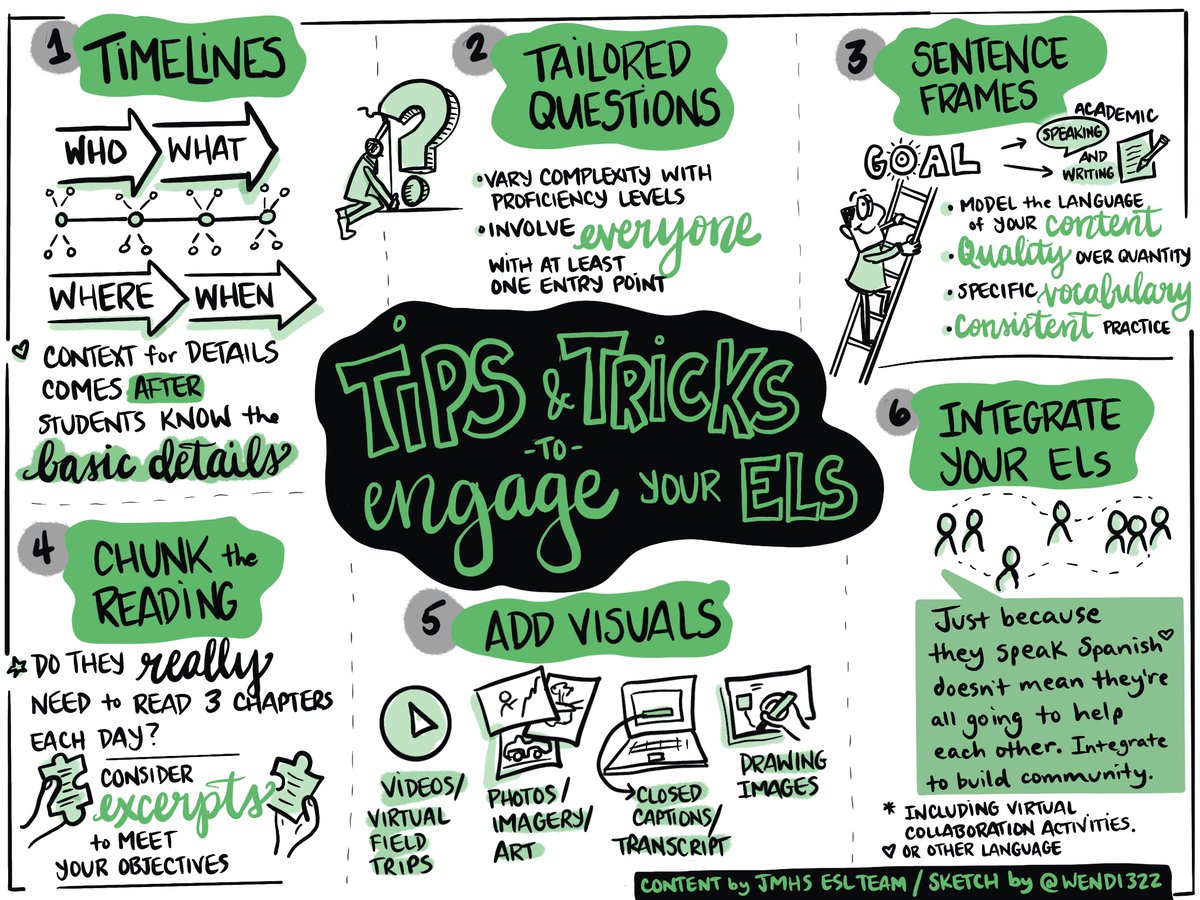 1 TIMELINES
WHO WHAT
WHERE WHEN
CONTEXT for DETAILS
COMES AFTER
STUDENTS KNOW the
basic details
2 TAILORED
QUESTIONS
?
• VARY COMPLEXITY WITH
PROFICIENCY LEVELS
• INVOLVE everyone
WITH AT LEAST
ONE ENTRY POINT
3 SENTENCE
FRAMES
GOAL
ACADEMIC
SPEAKING
AND
WRITING
• MODEL the LANGUAGE
of YOUR content
• Quality OVER QUANTITY
• SPECIFIC vocabulary
• Consistent PRACTICE
TIPS & TRICKS
-TO-
engage YOUR ELS
4 CHUNK the
READING
DO THEY really
NEED to READ 3 CHAPTERS
EACH DAY?
CONSIDER
excerpts
to MEET
YOUR OBJECTIVES
5 ADD VISUALS
VIDEOS/
VIRTUAL
FIELD
TRIPS
PHOTOS/
IMAGERY/
ART
CLOSED
CAPTIONS/
TRANSCRIPT
DRAWING
IMAGES
6 INTEGRATE
YOUR ELS
Just because
they speak Spanish♡
doesn't mean they're
all going to help
each other. Integrate
to build community.
* INCLUDING VIRTUAL
COLLABORATION ACTIVITIES.
♡ OR OTHER LANGUAGE
CONTENT by JMHS ESL TEAM / SKETCH by @WENDI322